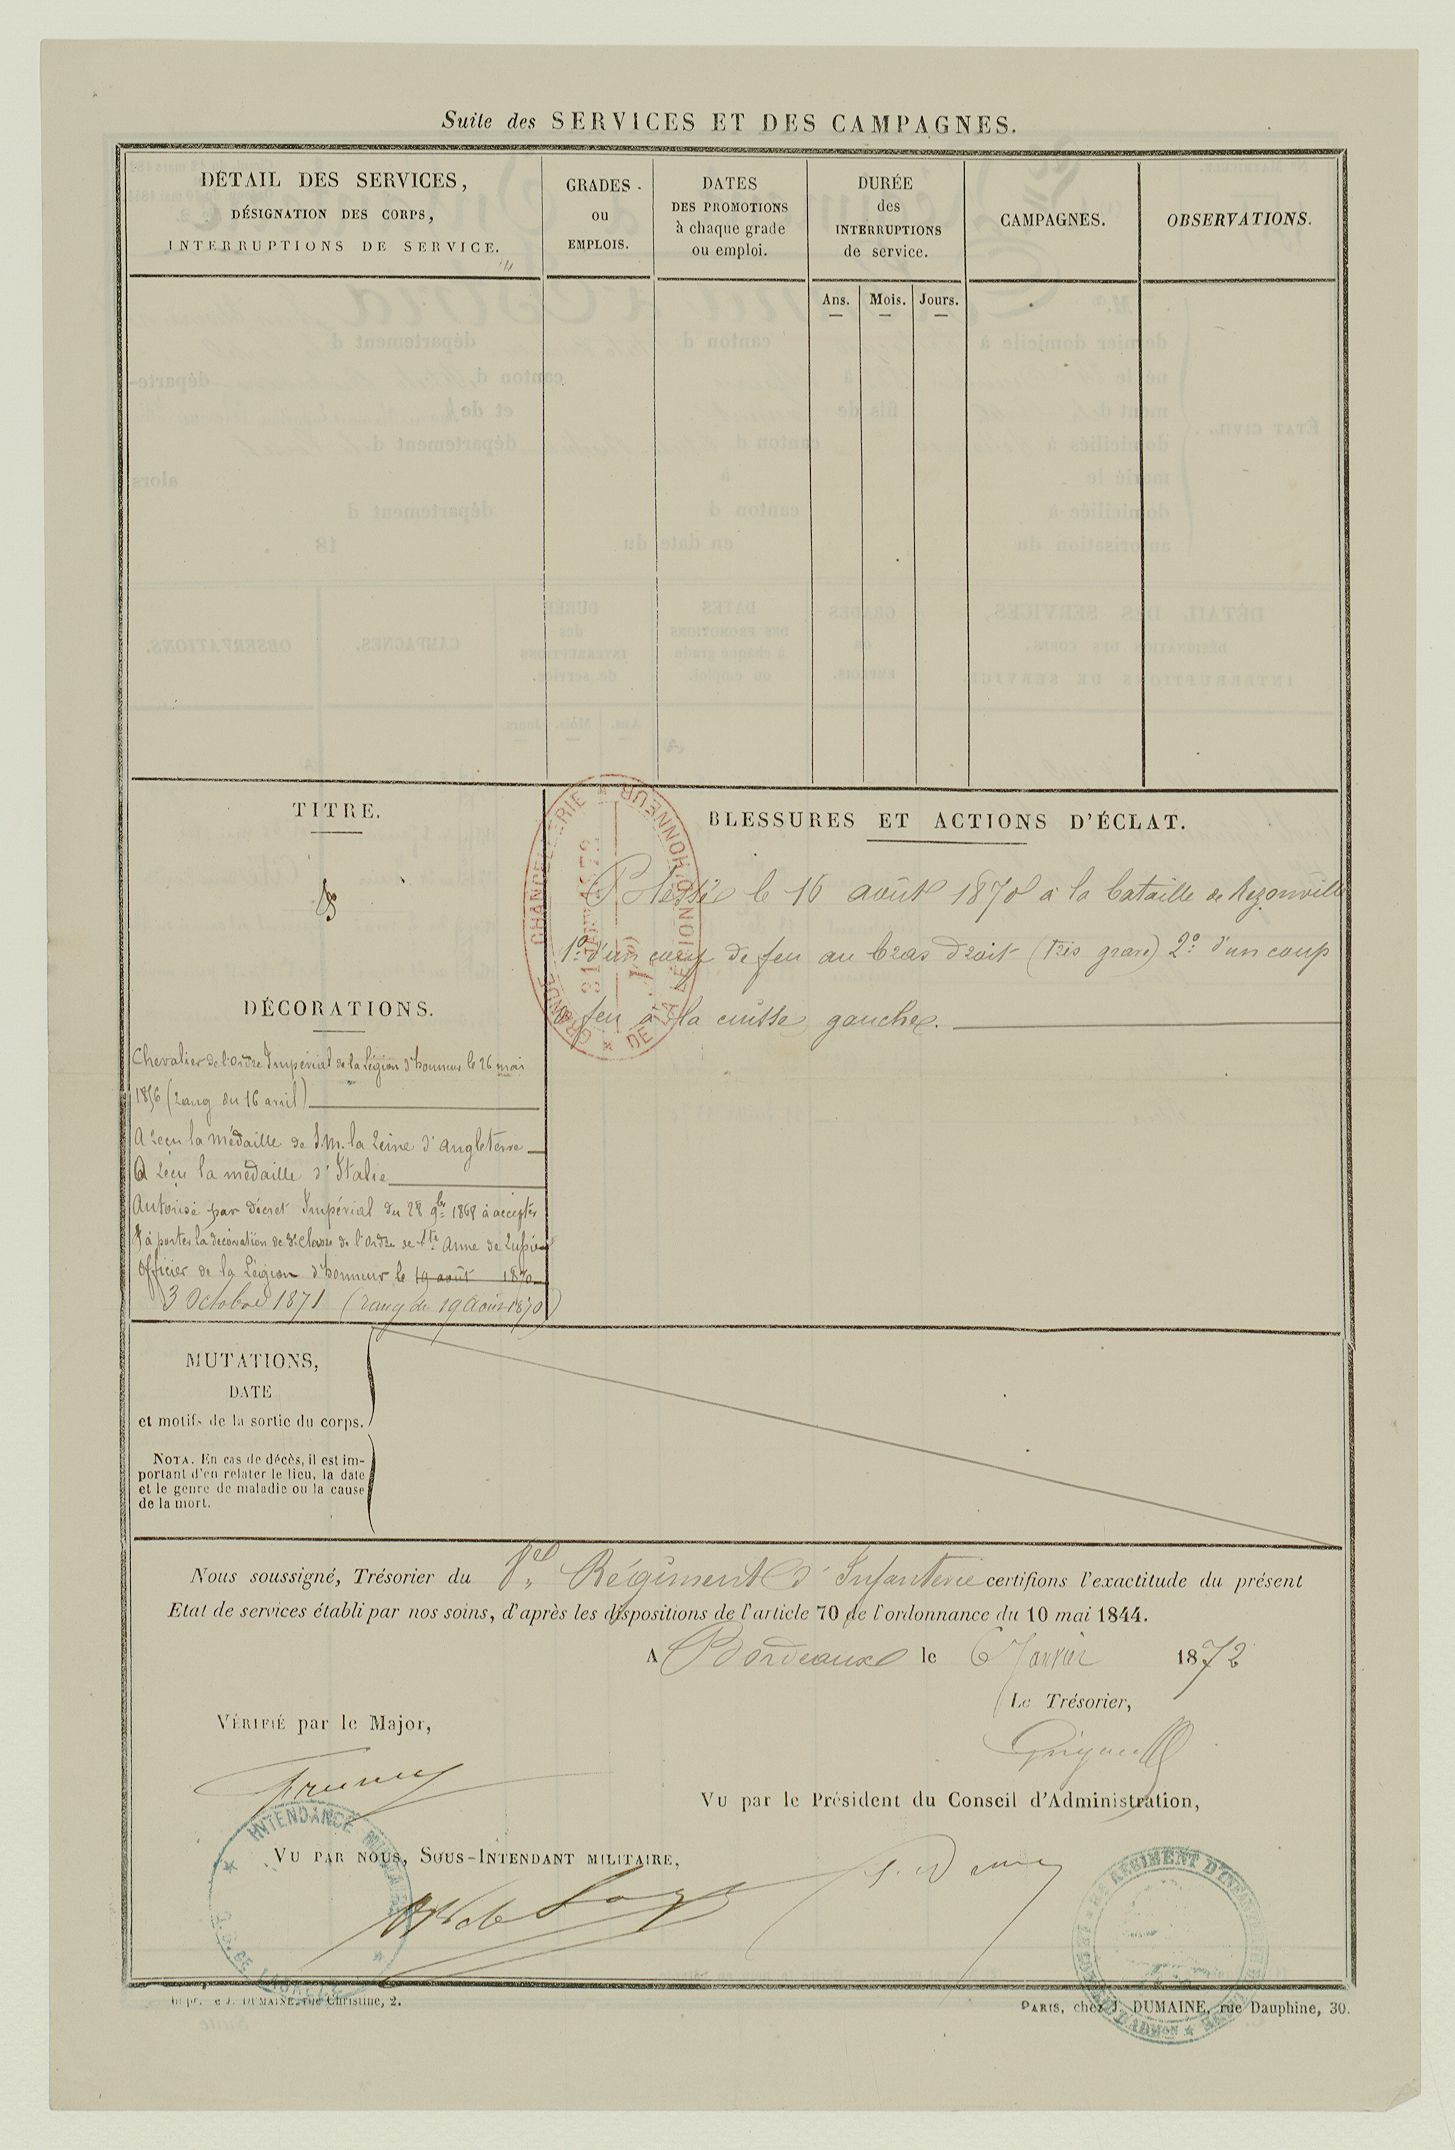 Suite des SERVICES ET DES CAMPAGNES.
DÉTAIL DES SERVICES,
DÉSIGNATION DES CORPS,
INTERRUPTIONS DE SERVICE.
GRADES
ou
EMPLOIS.
DATES
DES PROMOTIONS
à chaque grade
ou emploi.
DURÉE
des
INTERRUPTIONS
de service.
CAMPAGNES.
OBSERVATIONS.
Ans. Mois. Jours.
TITRE.
BLESSURES ET ACTIONS D'ÉCLAT.
Blessé le 16 août 1870 à la bataille de Rezonville
1º d'un coup de feu au bras droit (très grave) 2º d'un coup
de feu à la cuisse gauche.
GRANDE CHANCELLERIE * DE LA LÉGION D'HONNEUR *
31 JANV 1872
DÉCORATIONS.
Chevalier de l'ordre Impérial de la Légion d'honneur le 26 mai
1856 (rang du 16 avril)
A reçu la médaille de S.M. la Reine d'Angleterre
A reçu la médaille d'Italie
Autorisé par décret Impérial du 28 9bre 1868 à accepter
& à porter la décoration de classe de l'ordre de Ste Anne de
Officier de la Légion d'honneur le 19 août 1870
3 Octobre 1871 (rang du 19 Août 1870)
MUTATIONS,
DATE
et motifs de la sortie du corps.
NOTA. En cas de décès, il est im-
portant d'en relater le lieu, la date
et le genre de maladie ou la cause
de la mort.
Nous soussigné, Trésorier du Régiment d'Infanterie certifions l'exactitude du présent
Etat de services établi par nos soins, d'après les dispositions de l'article 70 de l'ordonnance du 10 mai 1844.
A Bordeaux le 6 Janvier 1872
Le Trésorier,
VÉRIFIÉ par le Major,
VU par le Président du Conseil d'Administration,
VU PAR NOUS, SOUS-INTENDANT MILITAIRE,
INTENDANCE MILITAIRE
RÉGIMENT D'INFANTERIE
Impr. de J. DUMAINE, rue Christine, 2.
PARIS, chez J. DUMAINE, rue Dauphine, 30.